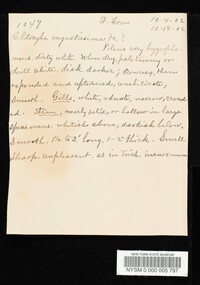 1047
St. Louis
10-4-02
10-18-02
Clitocybe angustissima Pk?
Pileus very hygrophanous, dirty white. When dry, pale
dull white, disk darker; convex, then
expanded and upturned, umbilicate,
smooth. Gills, white, adnate, narrow, crowd-
ed. Stem, nearly solid, or hollow in large
specimens, whitish above, darkish below,
smooth, 1½ to 2' long, 1-2'' thick. Smell
sharp unpleasant, as in Trich.
NEW YORK STATE MUSEUM
NYSM 0 000 005 797